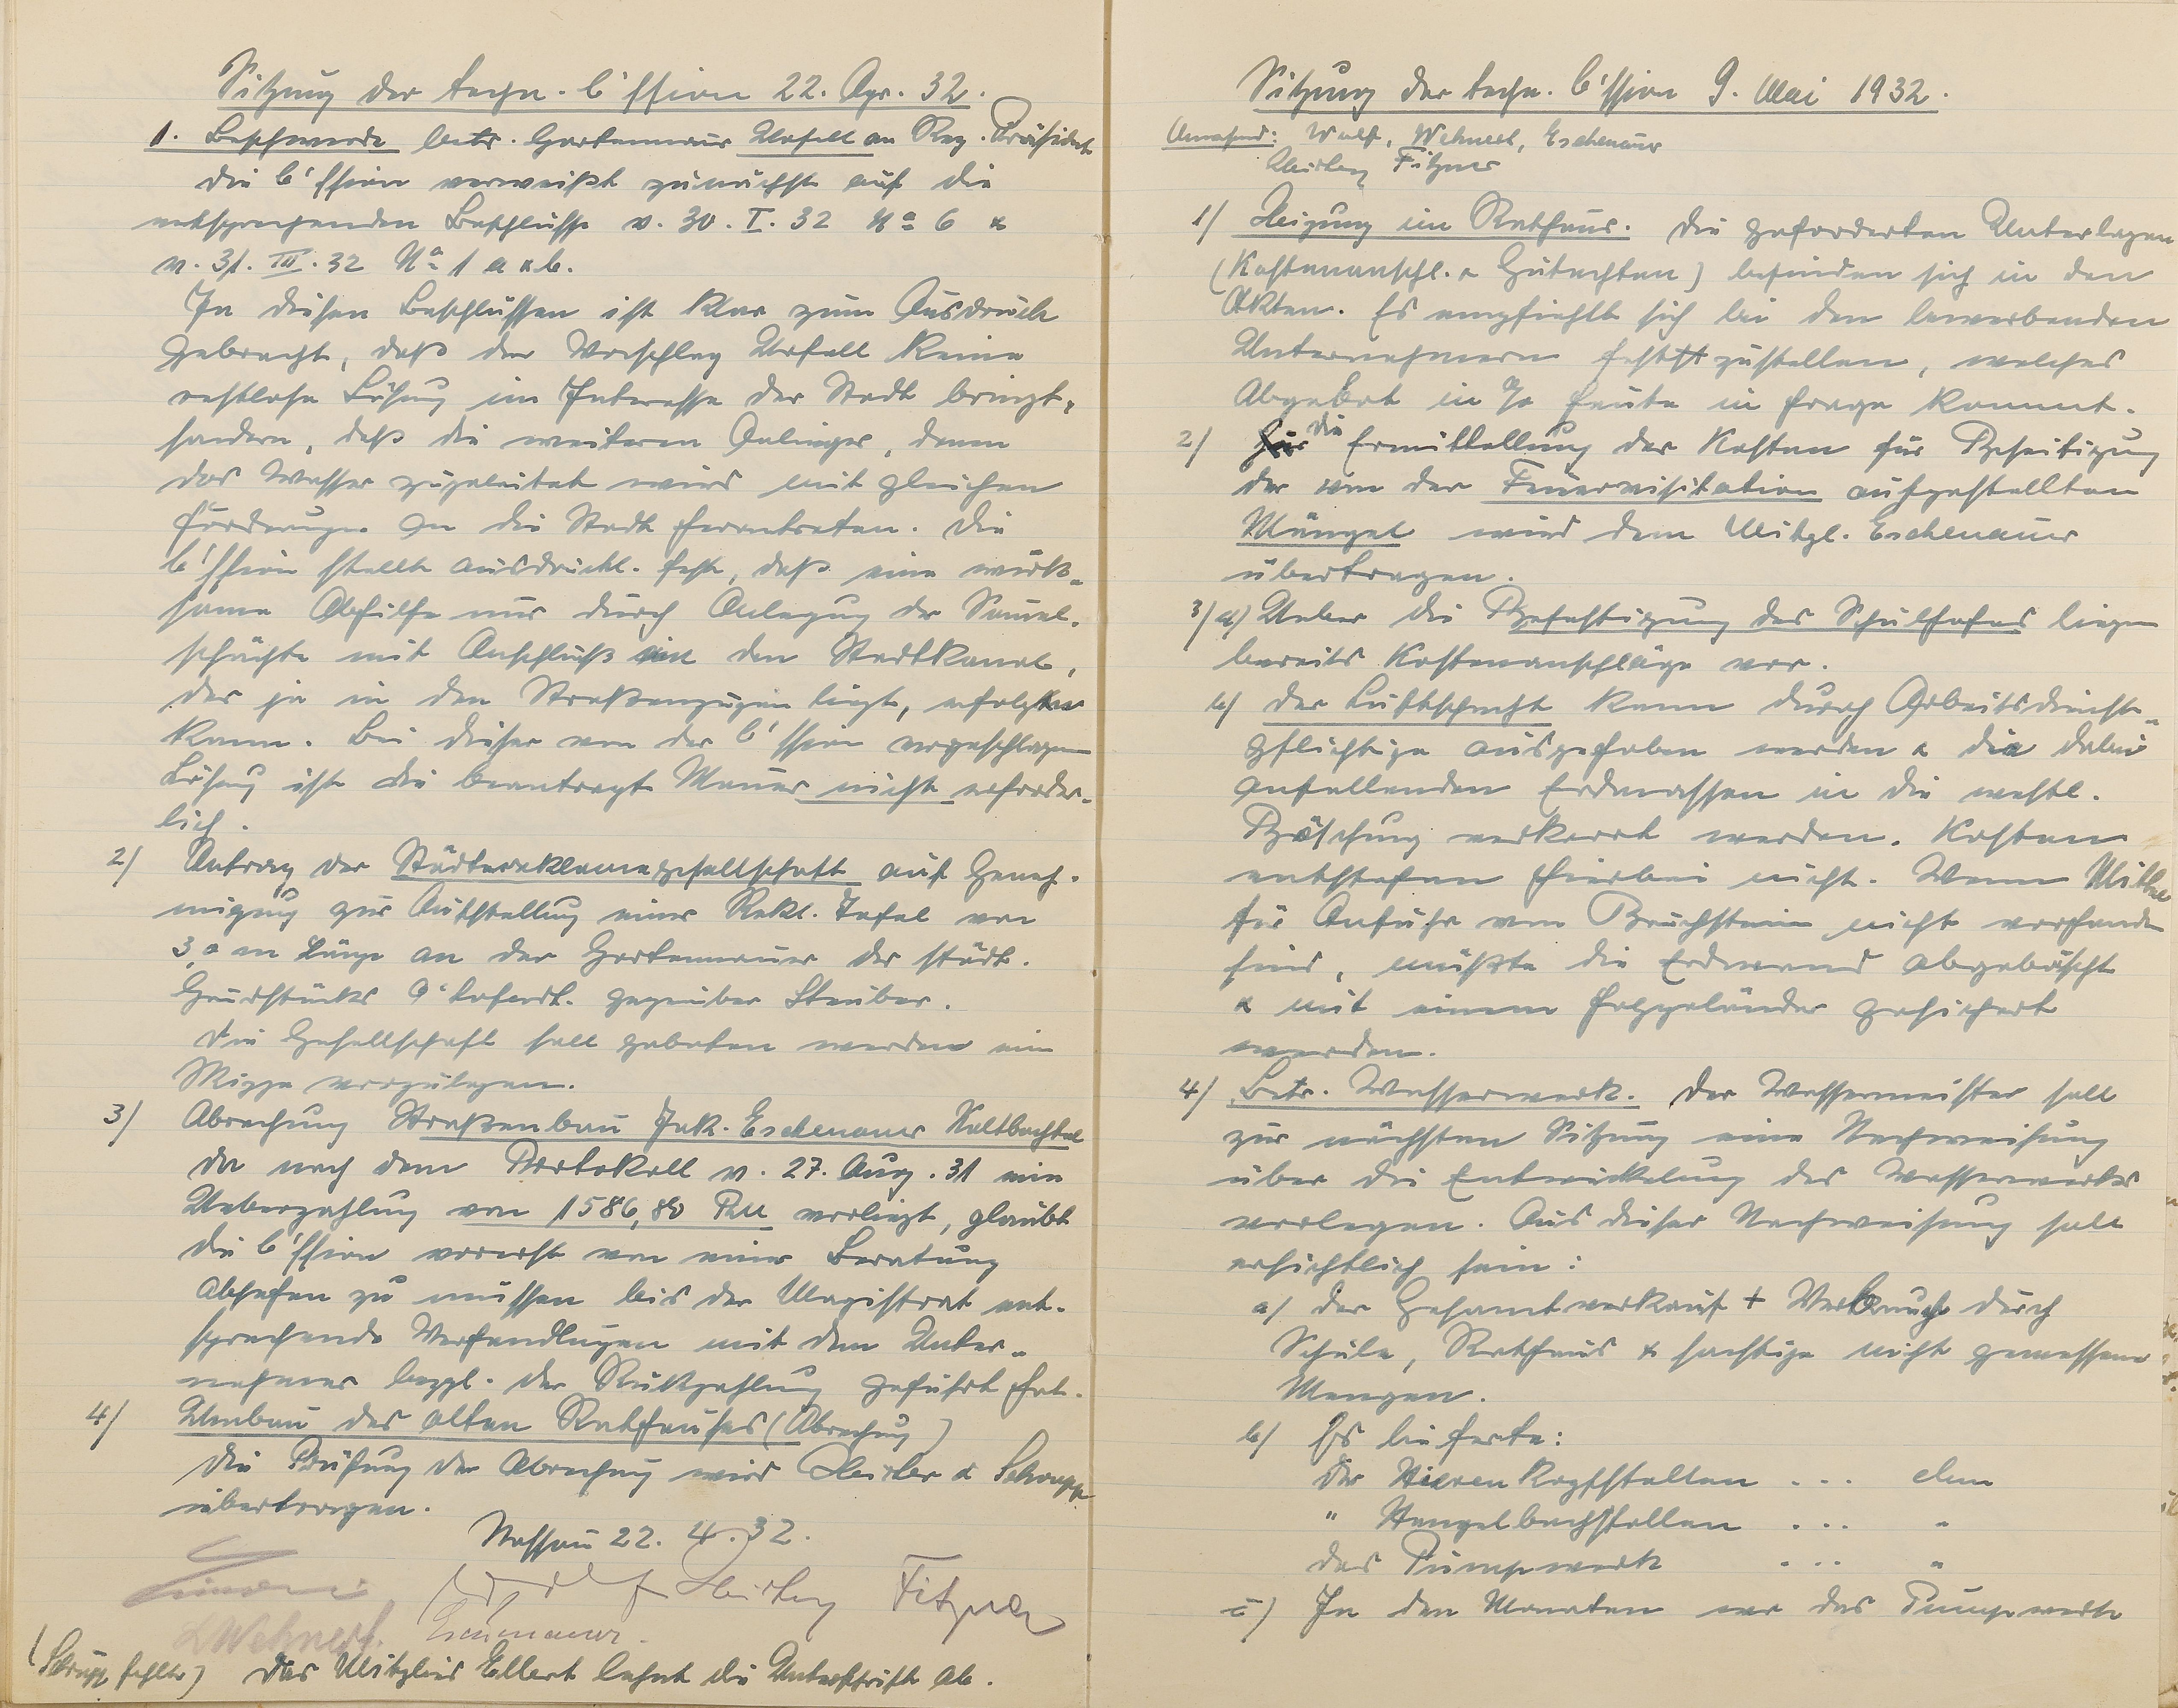 Sitzung der techn. C'ssion 22. Apr. 32.
1. Beschwerde betr. Gartenmauer Unfall an Reg. Präsident
Die C'ssion verweißt zunächst auf die
entsprechenden Beschlüsse v. 30. I. 32 No 6 &
v. 31. III. 32 No 1 a & b.
In diesen Beschlüssen ist klar zum Ausdruck
gebracht, daß der Vorschlag Urfell keine
restlose Lösung im Interesse der Stadt bringt,
sondern, daß die weiteren Anlieger, denen
das Wasser zugeleitet wird mit gleichen
Forderungen an die Stadt herantreten. Die
C'ssion stellt ausdrückl. fest, daß eine wirk-
same Abhilfe nur durch Anlegung der Samel-
schächte mit Anschluß an den Stadtkanal,
der ja in den Straßenzügen liegt, erfolgen
kann. Bei dieser von der C'ssion vorgeschlagenen
Lösung ist die beantragte Mauer nicht erforder-
lich.
2) Antrag der Städtereklamegesellschaft auf Geneh-
migung zur Aufstellung einer Rekl. Tafel von
3,0 m Länge an der Gartenmauer des städt.
Grundstücks gegenüber Stauber.
Die Gesellschaft soll gebeten werden eine
Skizze vorzulegen.
3) Abrechnung Straßenbau Jak. Eschenauer Kaltbachtal
Da nach dem Protokoll v. 27. Aug. 31 eine
Ueberzahlung von 1586,80 RM vorliegt, glaubt
die C'ssion vorerst von einer Beratung
absehen zu müssen bis der Magistrat ent-
sprechende Verhandlungen mit dem Unter-
nehmer bezgl. der Rückzahlung geführt hat.
4) Umbau des alten Rathauses (Abrechnung)
Die Prüfung der Abrechnung wird Meisler & Schrupp
übertragen.
Nassau 22. 4. 32.
Fitzner
L Wehnert. Eschenauer.
(Schrupp fehlte) Das Mitglied Ellert lehnt die Unterschrift ab.
Sitzung der techn. C'ssion 9. Mai 1932.
Anwesend: Wulf, Wehnert, Eschenauer
Fitzner
1) Heizung im Rathaus. Die geforderten Unterlagen
(Kostenanschl. & Gutachten) befinden sich in den
Akten. Es empfiehlt sich bei den bewerbenden
Unternehmern festzustellen, welches
Abgebot in % heute in Frage kommt.
2) Die Ermittellung der Kosten für Beseitigung
der von der Feuervisitation aufgestellten
Mängel wird dem Mitgl. Eschenauer
übertragen.
3) a) Ueber die Befestigung des Schulhofes liegen
bereits Kostenanschläge vor.
b) Der Luftschacht kann durch Arbeitsdienst-
pflichtige ausgehoben werden & die dabei
anfallenden Erdmassen in die westl.
Böschung verkarrt werden. Kosten
entstehen hierbei nicht. Wenn Mittel
für Anfuhr von Bruchstein nicht vorhanden
sind, müßte die Erdwand abgeböscht
& mit einem Holzgeländer gesichert
werden.
4) Betr. Wasserwerk. Der Wassermeister soll
zur nächsten Sitzung eine Nachweisung
über die Entwickelung des Wasserwerks
vorlegen. Aus dieser Nachweisung soll
ersichtlich sein:
a) der Gesamtverkauf + Verbrauch durch
Schule, Rathaus & sonstige nicht gemessene
Mengen.
b) Es lieferte:
Der Hierenkopfstollen . . . cbm
" Hengelbachstollen . . . "
das Pumpwerk . . . "
c) In den Monaten war das Pumpwerk